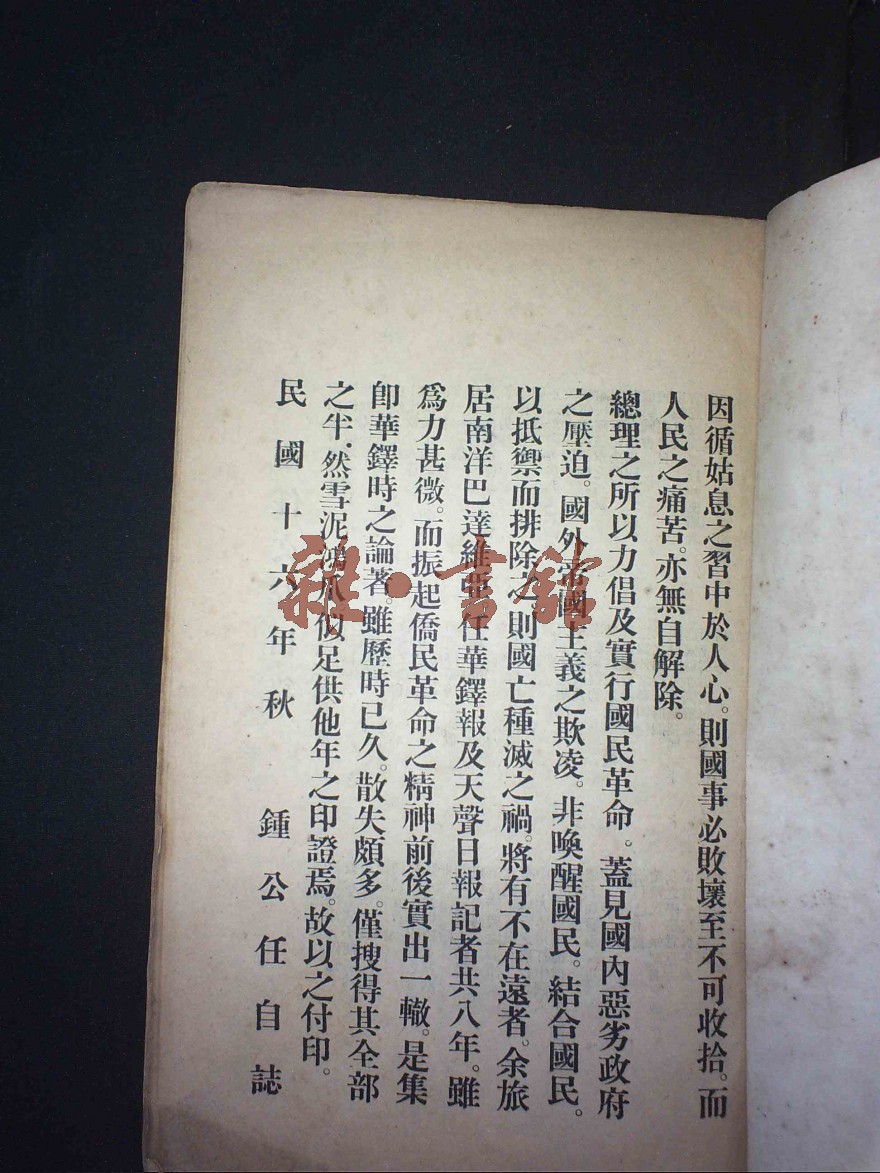 因循姑息之習中於人心。則國事必敗壞至不可收拾。而
人民之痛苦。亦無自解除。
總理之所以力倡及實行國民革命。蓋見國內惡劣政府
之壓迫。國外帝國主義之欺凌。非喚醒國民。結合國民。
以抵禦而排除之。則國亡種滅之禍。將有不在遠者。余旅
居南洋巴達維亞任華鐸報及天聲日報記者共八年。雖
為力甚微。而振起僑民革命之精神前後實出一轍。是集
卽華鐸時之論著。雖歷時已久。散失頗多。僅搜得其全部
之半。然雪泥鴻爪似足供他年之印證焉。故以之付印。
民國十六年秋 鍾公任自誌
雜·書館